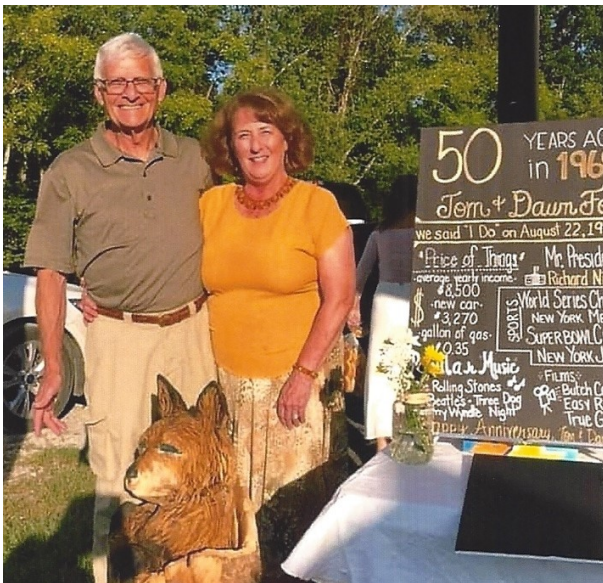 50 YEARS AG
in 196
Tom & Dawn Fo
we said "I Do" on August 22, 19
Price of Things
-average yearly income-
$8,500
-new car-
$3,270
-gallon of gas-
$0.35
Mr. Preside
Richard N
SPORTS
World Series Ch
NEW YORK ME
SUPERBOWL C
NEW YORK J
Music
Rolling Stones
Beatles - Three Dog
Night
·Films·
Butch Ca
Easy R
True G
Happy Anniversary, Tom & Da